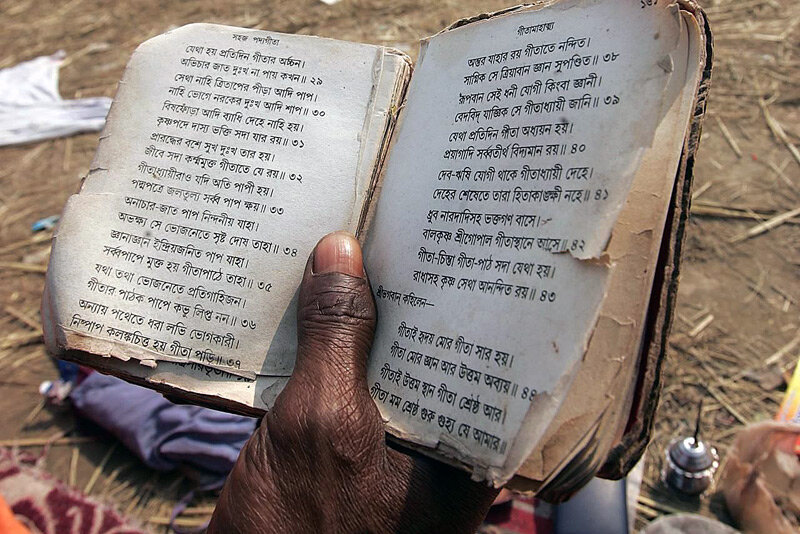 সহজ পদ্যগীতা
যেথা হয় প্রতিদিন গীতার অর্চ্চন।
অভিচার জাত দুঃখ না পায় কখন॥ ২৯
সেথা নাহি ত্রিতাপের পীড়া আদি পাপ।
নাহি ভোগে নরকের দুঃখ আদি শাপ॥ ৩০
বিষফোঁড়া আদি ব্যাধি দেহে নাহি হয়।
কৃষ্ণপদে দাস্য ভক্তি সদা যার রয়॥ ৩১
প্রারব্ধের বশে সুখ দুঃখ তার হয়।
জীবে সদা কর্ম্মমুক্ত গীতাতে যে রয়॥ ৩২
গীতাধ্যায়ীরাও যদি অতি পাপী হয়।
পদ্মপত্রে জলতুল্য সর্ব্ব পাপ ক্ষয়॥ ৩৩
অনাচার-জাত পাপ নিন্দনীয় যাহা।
অভক্ষ্য সে ভোজনেতে সৃষ্ট দোষ তাহা॥ ৩৪
জ্ঞানাজ্ঞান ইন্দ্রিয়জনিত পাপ যাহা।
সর্ব্বপাপে মুক্ত হয় গীতাপাঠে তাহা॥ ৩৫
যথা তথা ভোজনেতে প্রতিগাহিজন।
গীতার পাঠক পাপে কভু লিপ্ত নন॥ ৩৬
অন্যায় পথেতে ধরা লভি ভোগকারী।
নিষ্পাপ কলঙ্কচিত্ত হয় গীতা পড়ি॥ ৩৭
গীতামাহাত্ম্য
অন্তর যাহার রয় গীতাতে নন্দিত।
সাগ্নিক সে ত্রিয়াবান জ্ঞান সুপণ্ডিত॥ ৩৮
রূপবান সেই ধনী যোগী কিংবা জ্ঞানী।
বেদবিদ্ যাজ্ঞিক সে গীতাধ্যায়ী জানি॥ ৩৯
যেথা প্রতিদিন গীতা অধ্যয়ন হয়।
প্রয়াগাদি সর্ব্বতীর্থ বিদ্যমান রয়॥ ৪০
দেব-ঋষি যোগী থাকে গীতাধ্যায়ী দেহে।
দেহের শেষেতে তারা হিতাকাঙক্ষী নহে॥ ৪১
ধ্রুব নারদাদিসহ ভক্তগণ বাসে।
বালকৃষ্ণ শ্রীগোপাল গীতাস্থানে আসে॥ ৪২
গীতা-চিন্তা গীতা-পাঠ সদা যেথা হয়।
রাধাসহ কৃষ্ণ সেথা আনন্দিত রয়॥ ৪৩
শ্রীভগবান্ কহিলেন—
গীতাই হৃদয় মোর গীতা সার হয়।
গীতা মোর জ্ঞান আর উত্তম অব্যয়॥ ৪৪
গীতাই উত্তম স্থান গীতা শ্রেষ্ঠ আর।
গীতা মম শ্রেষ্ঠ গুরু গুহ্য যে আমার॥